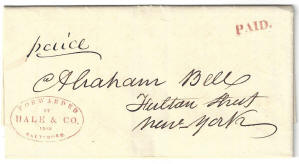 PAID.
paid
Abraham Bell
Fulton Street
New York
FORWARDED
BY
HALE & CO.
FROM
BALTIMORE